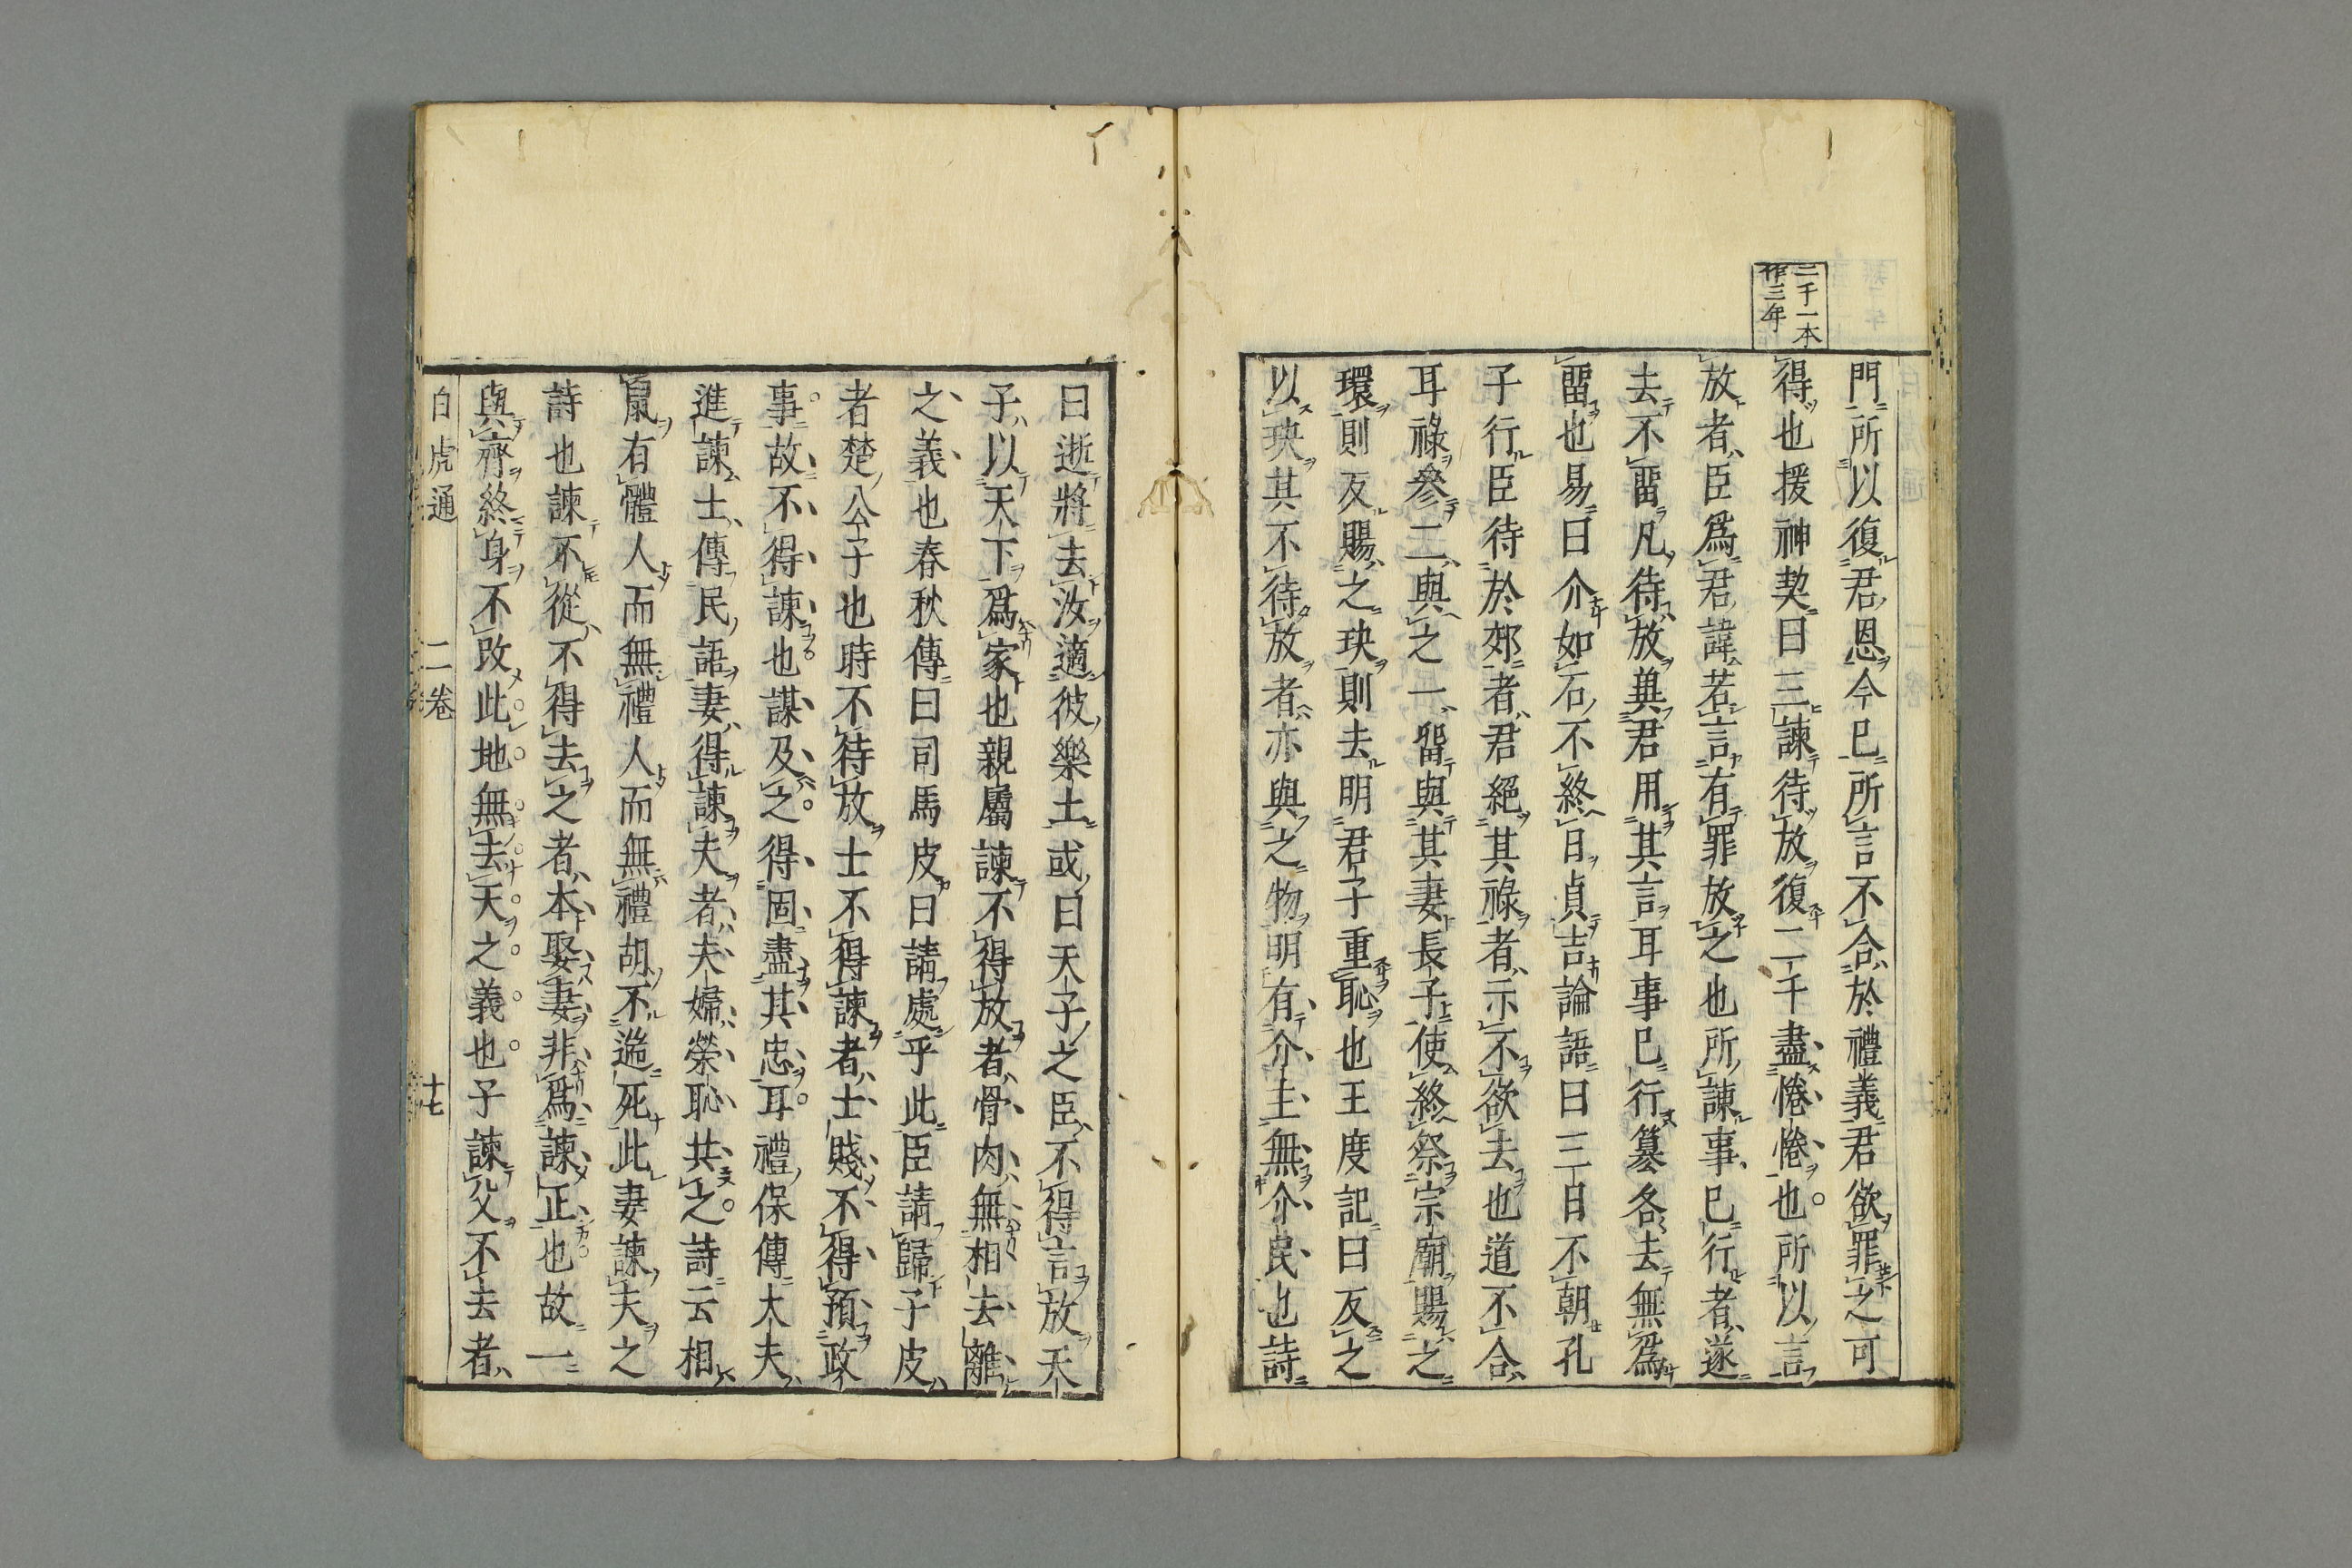 二千一本
作三年
門所以復君恩今已所言不合於禮義君欲罪之可
得也援神契曰三諫待放復二千盡惓惓也所以言
放者臣爲君諱若言有罪放之也所諫事已行者遂
去不畱凡待放兾君用其言耳事已行篡各去無爲
畱也易曰介如石不終日貞吉論語曰三日不朝孔
子行臣待於郊者君絕其祿者示不欲去也道不合
耳祿參二與之一畱與其妻長子使終祭宗廟賜之
環則反賜之玦則去明君子重恥也王度記曰反之
以玦其不待放者亦與之物明有介主無介民也詩
曰逝將去汝適彼樂土或曰天子之臣不得言放天
子以天下爲家也親屬諫不得放者骨肉無相去離
之義也春秋傳曰司馬皮曰請處乎此臣請歸子皮
者楚公子也時不待放士不得諫者士賤不得預政
事故不得諫也謀及之得固盡其忠耳禮保傳大夫
進諫士傳民語妻得諫夫者夫婦榮恥共之詩云相
鼠有體人而無禮人而無禮胡不遄死此妻諫夫之
詩也諫不從不得去之者本娶妻非爲諫正也故一
與齊終身不改此地無去天之義也子諫父不去者
白虎通　二卷　十七